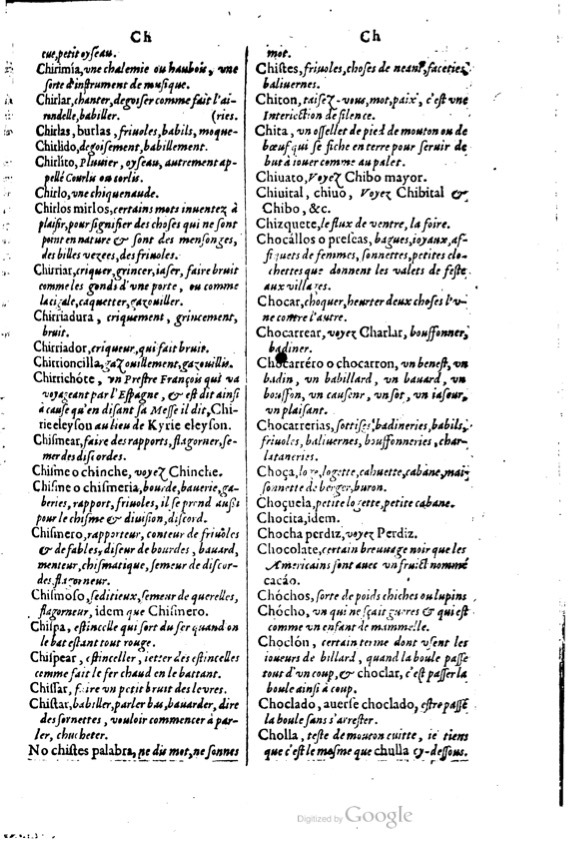 Ch
cue, petit oyseau.
Chirimía, vne chalemie ou haubois, vne
sorte d'instrument de musique.
Chirlar, chanter, degoiser comme fait l'ai-
rondelle, babiller. (ries.
Chirlas, burlas, friuoles, babils, moque-
Chirlido, degoisement, babillement.
Chirlito, Pluuier, oyseau, autrement ap-
pellé Courlu ou corlis.
Chirlo, vne chiquenaude.
Chirlos mirlos, certains mots inuentez à
plaisir, pour signifier des choses qui ne sont
point en nature & sont des mensonges,
des billes vezees, des friuoles.
Chirriar, criquer, grincer, iaser, faire bruit
comme les gonds d'vne porte, ou comme
la cigale, caquetter, gazouiller.
Chirriadura, criquement, grincement,
bruit.
Chirriador, criqueur, qui fait bruit.
Chirrioncilla, gazouillement, gazouillis.
Chirrichóte, vn Prestre François qui va
voyageant par l'Espagne, & est dit ainsi
à cause qu'en disant sa Messe il dit, Chi-
rie eleyson au lieu de Kyrie eleyson.
Chismear, faire des rapports, flagorner, se-
mer des discordes.
Chisme o chinche, voyez Chinche.
Chisme o chismeria, bourde, bauerie, ga-
beries, rapport, friuoles, il se prend aussi
pour le chisme & diuision, discord.
Chismero, rapporteur, conteur de friuoles
& de fables, diseur de bourdes, bauard,
menteur, chismatique, semeur de discor-
des, flagorneur.
Chismoso, seditieux, semeur de querelles,
flagorneur, idem que Chismero.
Chispa, estincelle qui sort du fer quand on
le bat estant tout rouge.
Chispear, estinceller, ietter des estincelles
comme fait le fer chaud en le battant.
Chistar, faire vn petit bruit des levres.
Chistar, babiller, parler bas, bauarder, dire
des sornettes, vouloir commencer à par-
ler, chucheter.
No chistes palabra, ne dis mot, ne sonnes
Ch
mot.
Chistes, friuoles, choses de neant, faceties,
baliuernes.
Chiton, taisez-vous, mot, paix, c'est vne
Interiection de silence.
Chita, vn osselet de pied de mouton ou de
bœuf qui se fiche en terre pour seruir de
but à iouer comme au palet.
Chiuato, Voyez Chibo mayor.
Chiuital, chiuo, Voyez Chibital &
Chibo, &c.
Chizquete, le flux de ventre, la foire.
Chocállos o preseas, bagues, ioyaux, af-
fiquets de femmes, sonnettes, petites clo-
chettes que donnent les valets de feste
aux villages.
Chocar, choquer, heurter deux choses l'v-
ne contre l'autre.
Chocarrear, voyez Charlar, bouffonner,
badiner.
Chocarréro o chocarron, vn benest, vn
badin, vn babillard, vn bauard, vn
bouffon, vn causeur, vn sot, vn iaseur,
vn plaisant.
Chocarrerias, sottises, badineries, babils,
friuoles, baliuernes, bouffonneries, char-
lataneries.
Choça, loge, logette, cahuette, cabane, mai-
sonnette de berger, buron.
Choçuela, petite logette, petite cabane.
Chocita, idem.
Chocha perdiz, voyez Perdiz.
Chocolate, certain breuuage noir que les
Americains font auec vn fruict nommé
cacáo.
Chóchos, sorte de poids chiches ou lupins
Chócho, vn qui ne sçait gueres & qui est
comme vn enfant de mammelle.
Choclón, certain terme dont vsent les
ioueurs de billard, quand la boule passe
tout d'vn coup, & choclar, c'est passer la
boule ainsi à coup.
Choclado, auerse choclado, estre passé
la boule sans s'arrester.
Cholla, teste de mouton cuitte, ie tiens
que c'est le mesme que chulla cy-dessous.
Digitized by Google